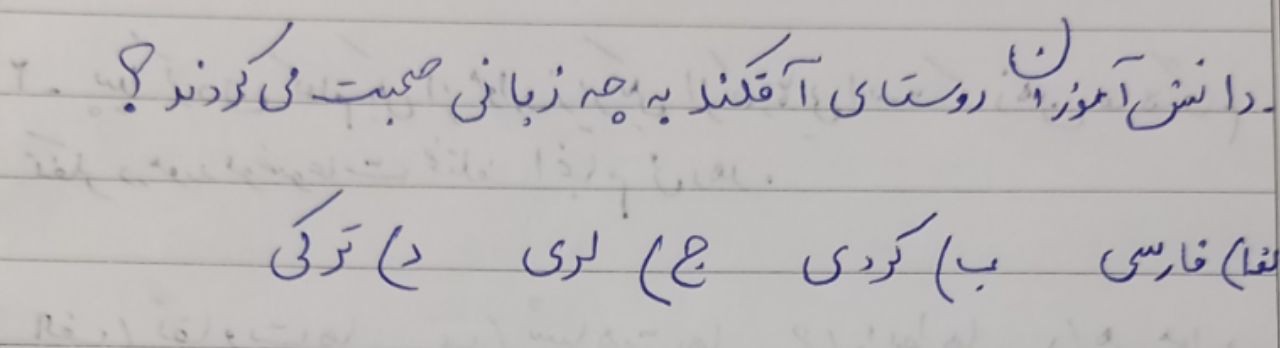 دانش آموزان روستای آقکند به چه زبانی صحبت می کردند؟
الف) فارسی ب) کردی ج) لری د) ترکی